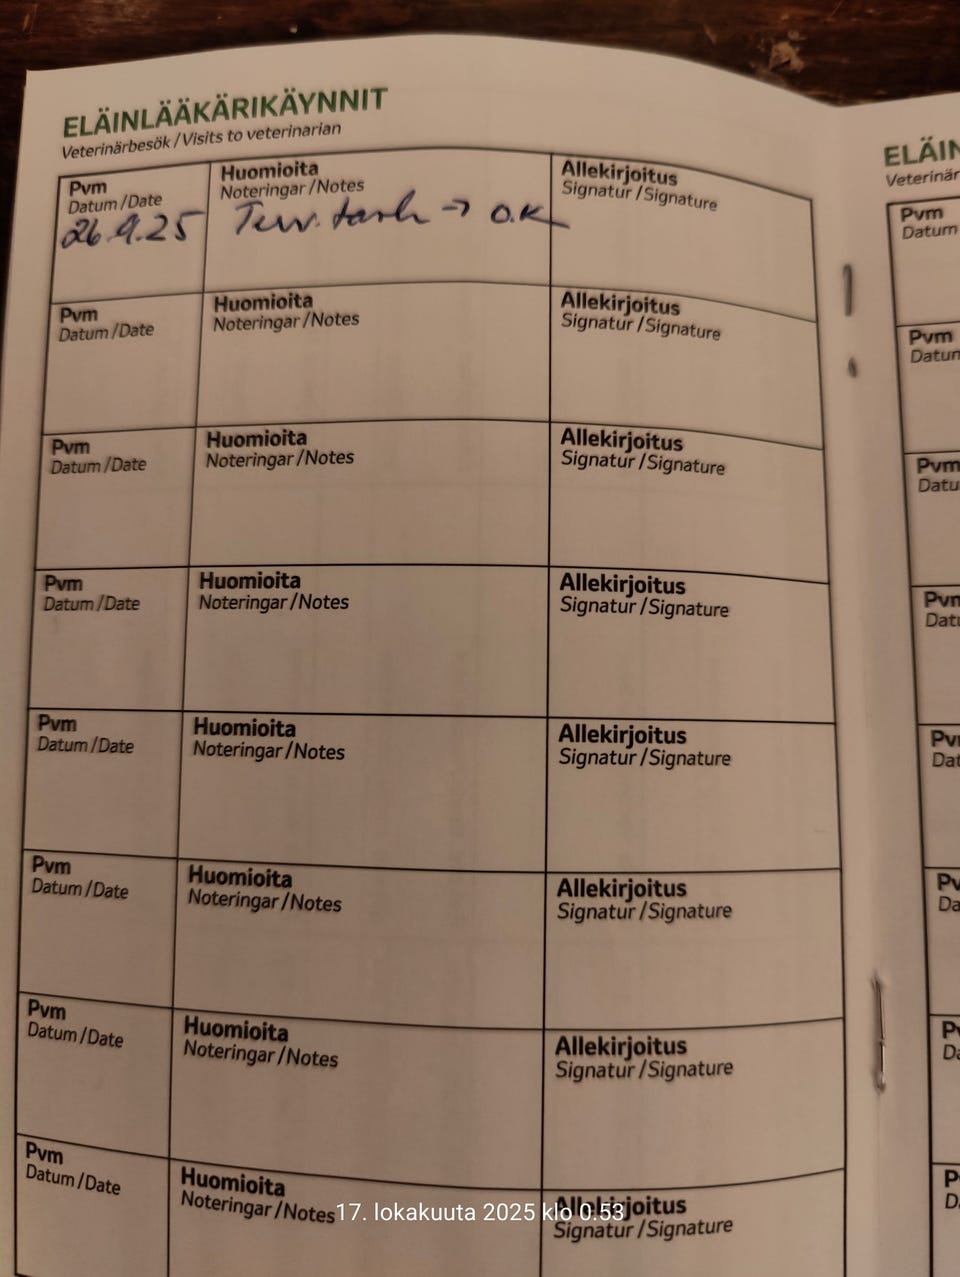 ELÄINLÄÄKÄRIKÄYNNIT
Veterinärbesök / Visits to veterinarian
Pvm
Datum / Date
26.9.25
Huomioita
Noteringar / Notes
Terv. tark → O.K
Allekirjoitus
Signatur / Signature
Pvm
Datum / Date
Huomioita
Noteringar / Notes
Allekirjoitus
Signatur / Signature
Pvm
Datum / Date
Huomioita
Noteringar / Notes
Allekirjoitus
Signatur / Signature
Pvm
Datum / Date
Huomioita
Noteringar / Notes
Allekirjoitus
Signatur / Signature
Pvm
Datum / Date
Huomioita
Noteringar / Notes
Allekirjoitus
Signatur / Signature
Pvm
Datum / Date
Huomioita
Noteringar / Notes
Allekirjoitus
Signatur / Signature
Pvm
Datum / Date
Huomioita
Noteringar / Notes
Allekirjoitus
Signatur / Signature
Pvm
Datum / Date
Huomioita
Noteringar / Notes
Allekirjoitus
Signatur / Signature
17. lokakuuta 2025 klo 0.53
Pvm
Datum
Pvm